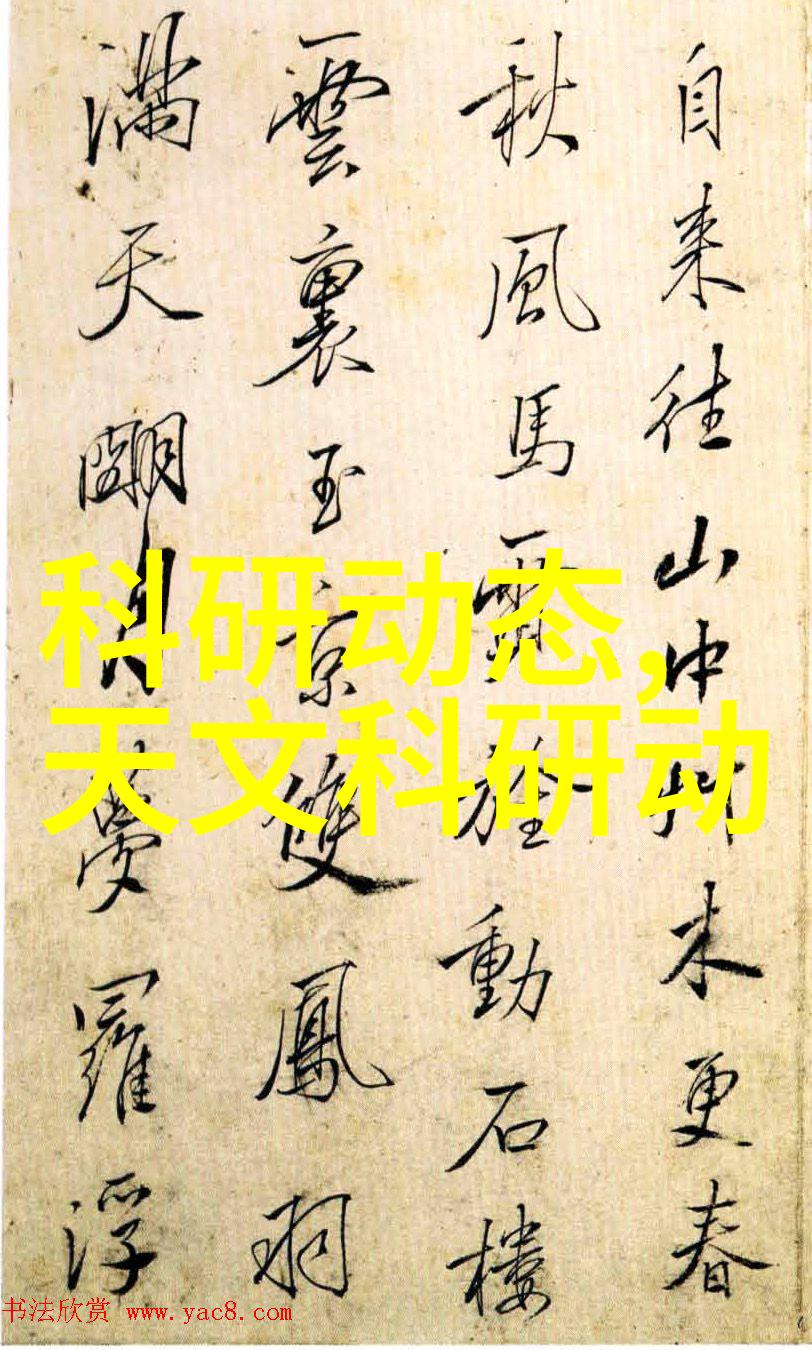 自来往山中草木更春
秋風馬霜旌動石樓
雲裏玉京雙鳳羽
滿天明月夢羅浮
科研动态，
天文科研动
书法欣赏 www.yac8.com